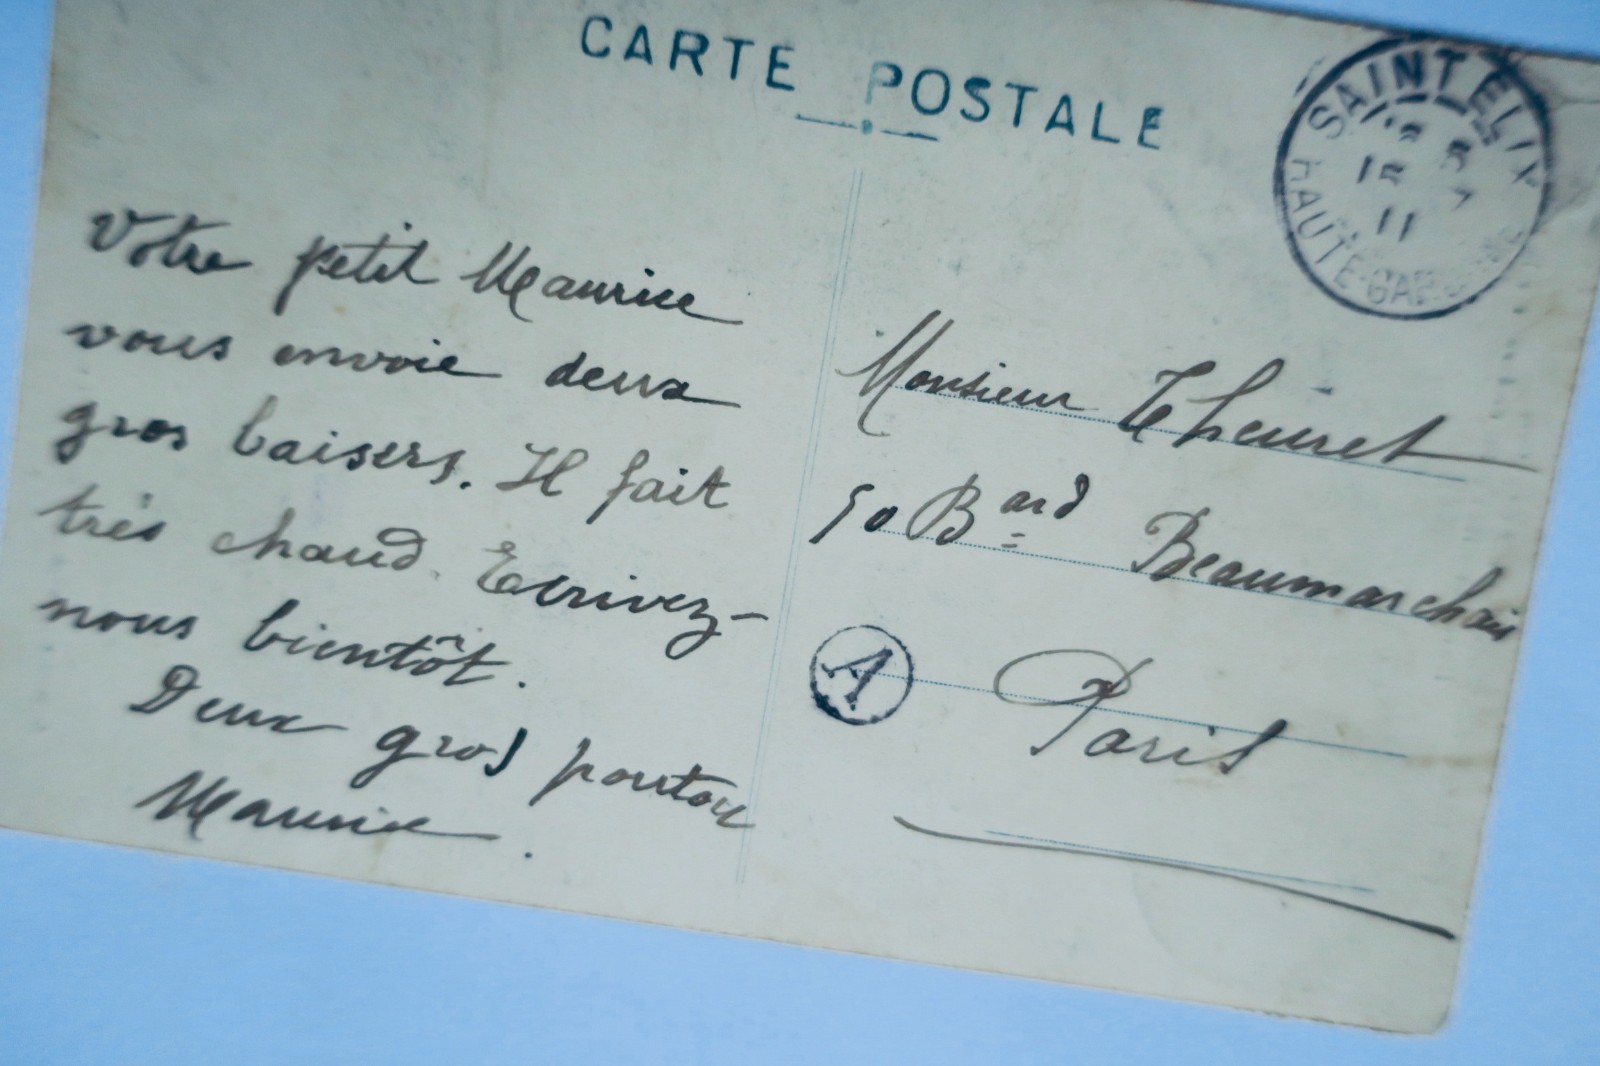 CARTE POSTALE
SAINT ELIX
11
HAUTE-GARONNE
Votre petit Maurice
vous envoie deux
gros baisers. Il fait
très chaud. Ecrivez-
nous bientôt.
Deux gros poutou
Maurice.
Monsieur
50 Bard Beaumarchais
A
Paris